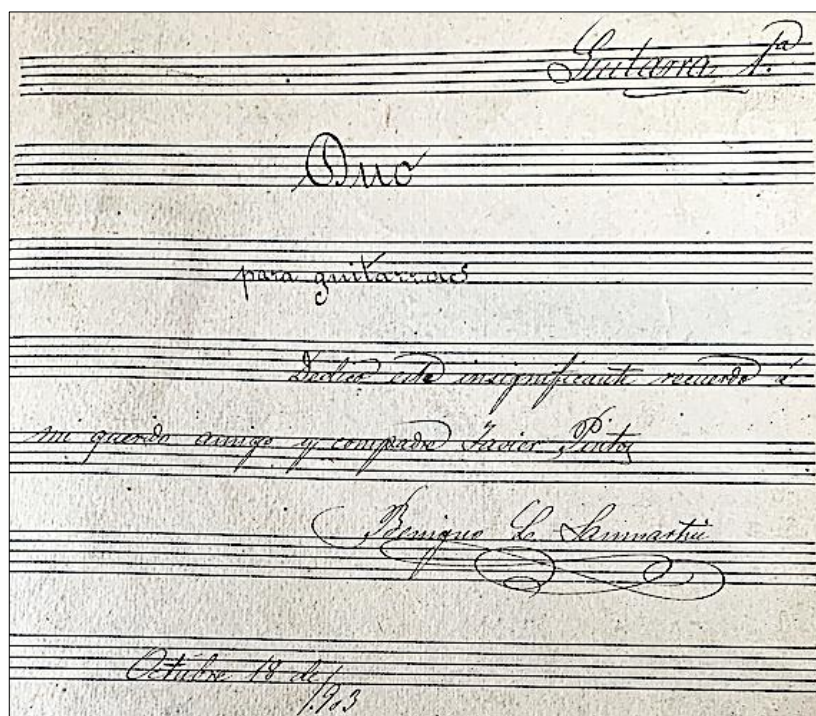 Guitarra 1.ª
Duo
para guitarras
Dedico este insignificante recuerdo á
mi querido amigo y compadre Javier Pintos
Benigno L. Sanmartin
Octubre 18 de
1903